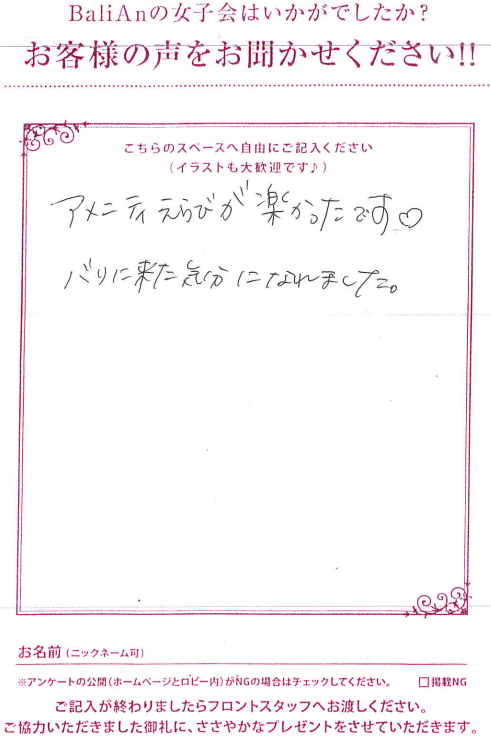 BaliAnの女子会はいかがでしたか?
お客様の声をお聞かせください!!
こちらのスペースへ自由にご記入ください
(イラストも大歓迎です♪)
アメニティえらびが楽かったです♡
バリに来た気分になれました。
お名前(ニックネーム可)
※アンケートの公開(ホームページとロビー内)がNGの場合はチェックしてください。 □掲載NG
ご記入が終わりましたらフロントスタッフへお渡しください。
ご協力いただきました御礼に、ささやかなプレゼントをさせていただきます。